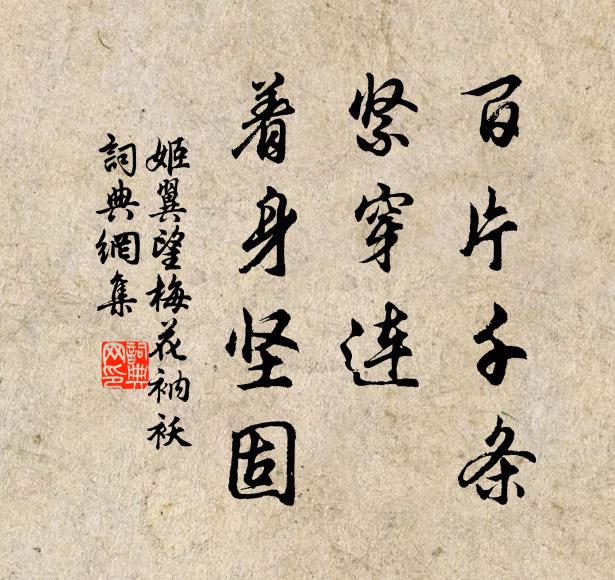 百片千条
紧穿连
着身坚固
姬翼望梅花衲袄
詞典網集
詞典
网印